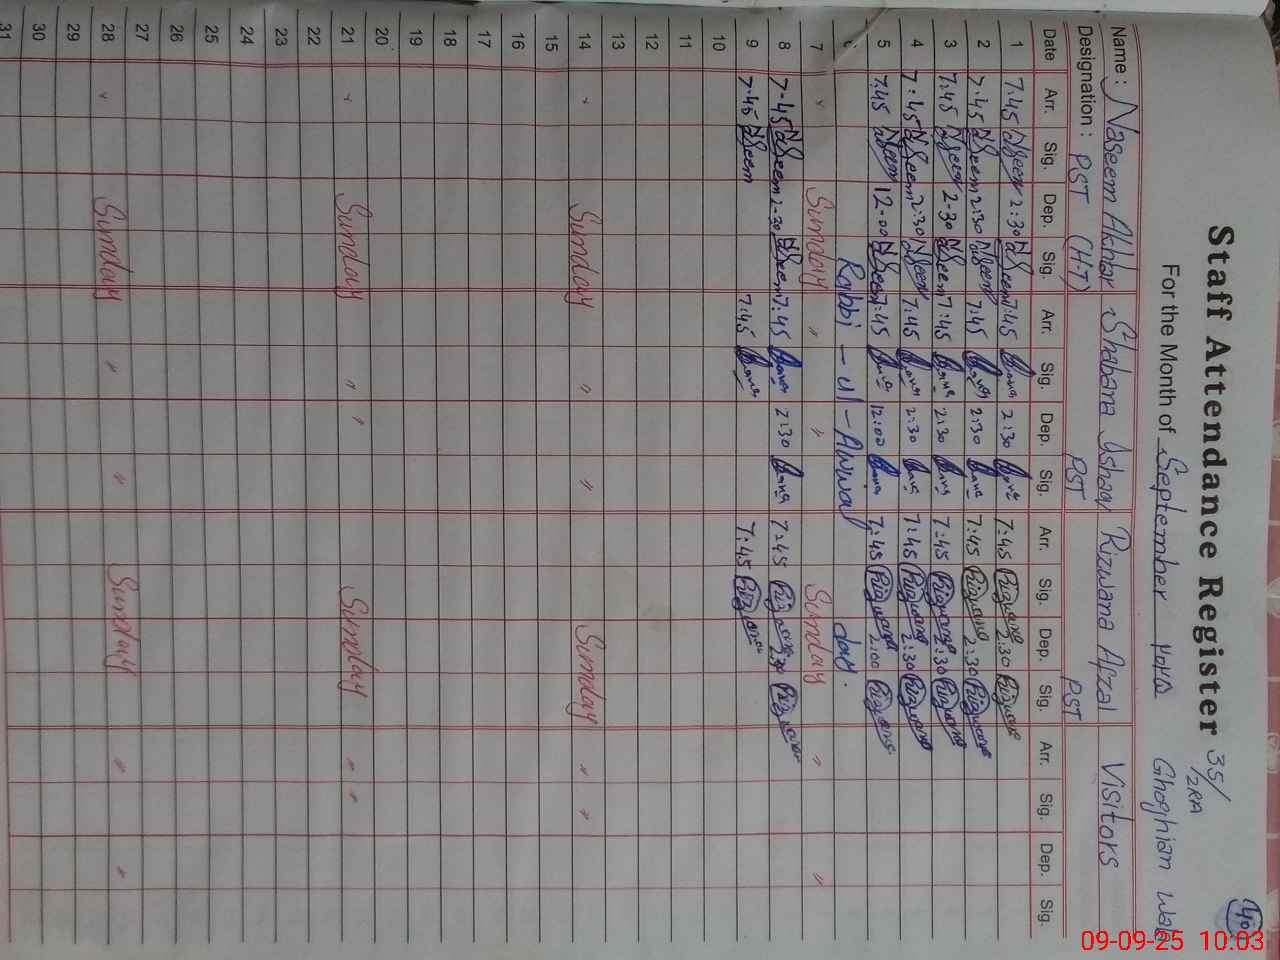 40
Staff Attendance Register 35/2RA
For the Month of September Ghoghian Wala
Name : Naseem Akhtar Shabana Ishaq Rizwana Afzal Visitors
Designation : PST (H.T) PST PST
Date Arr. Sig. Dep. Sig. Arr. Sig. Dep. Sig. Arr. Sig. Dep. Sig. Arr. Sig. Dep. Sig.
1 7:45 Naseem 2:30 Naseem 7:45 2:30 7:45 Rizwana 2:30 Rizwana
2 7:45 Naseem 2:30 Naseem 7:45 2:30 7:45 Rizwana 2:30 Rizwana
3 7:45 Naseem 2-30 Naseem 7:45 2:30 7:45 Rizwana 2:30 Rizwana
4 7:45 Naseem 2:30 Naseem 7:45 2:30 7:45 Rizwana 2:30 Rizwana
5 7:45 Naseem 12-00 Naseem 7:45 12:00 7:45 Rizwana 2:00 Rizwana
6 Rabbi - ul - Awwal day.
7 Sunday " " Sunday " "
8 7-45 Naseem 2-30 Naseem 7:45 2:30 7:45 Rizwana 2:30 Rizwana
9 7.45 Naseem 7:45 7:45 Rizwana
10
11
12
13
14 Sunday " " Sunday " "
15
16
17
18
19
20
21 Sunday " " Sunday " "
22
23
24
25
26
27
28 Sunday " " Sunday " "
29
30
31
09-09-25 10:03